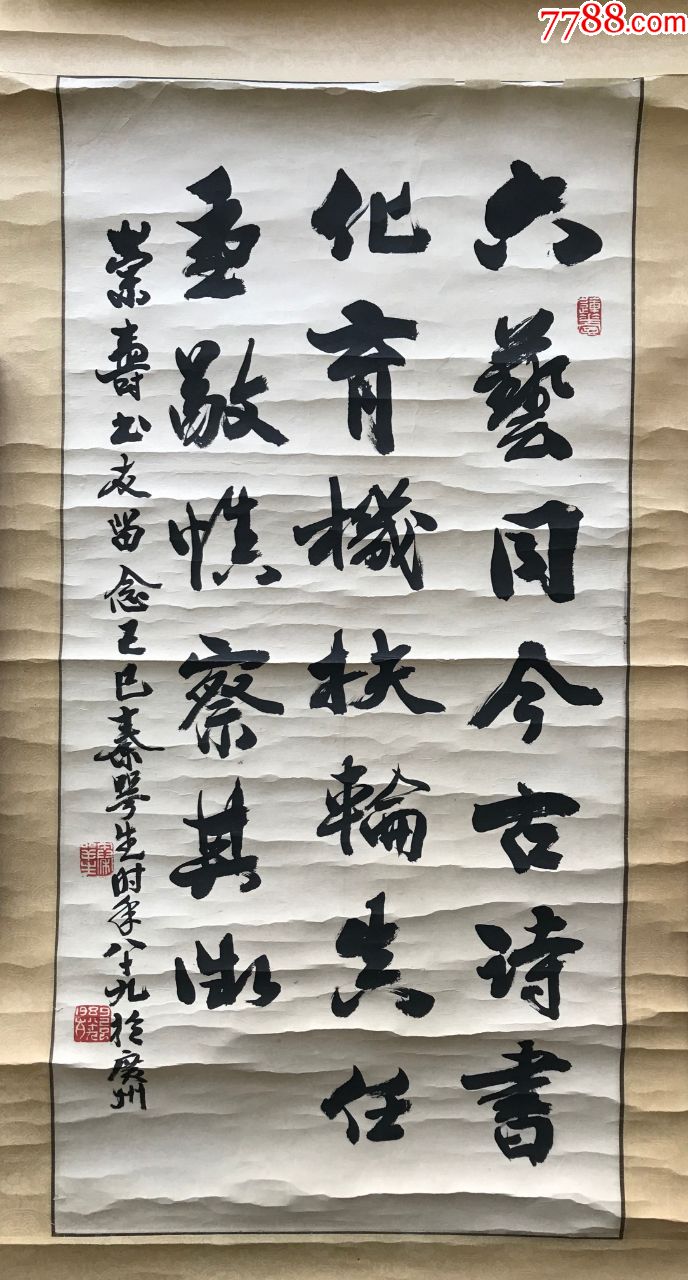 7788.com
六藝同今古诗書
化育機扶輪任
敬慎察其微
壽书友留念己巳秦咢生时年八十九於廣州